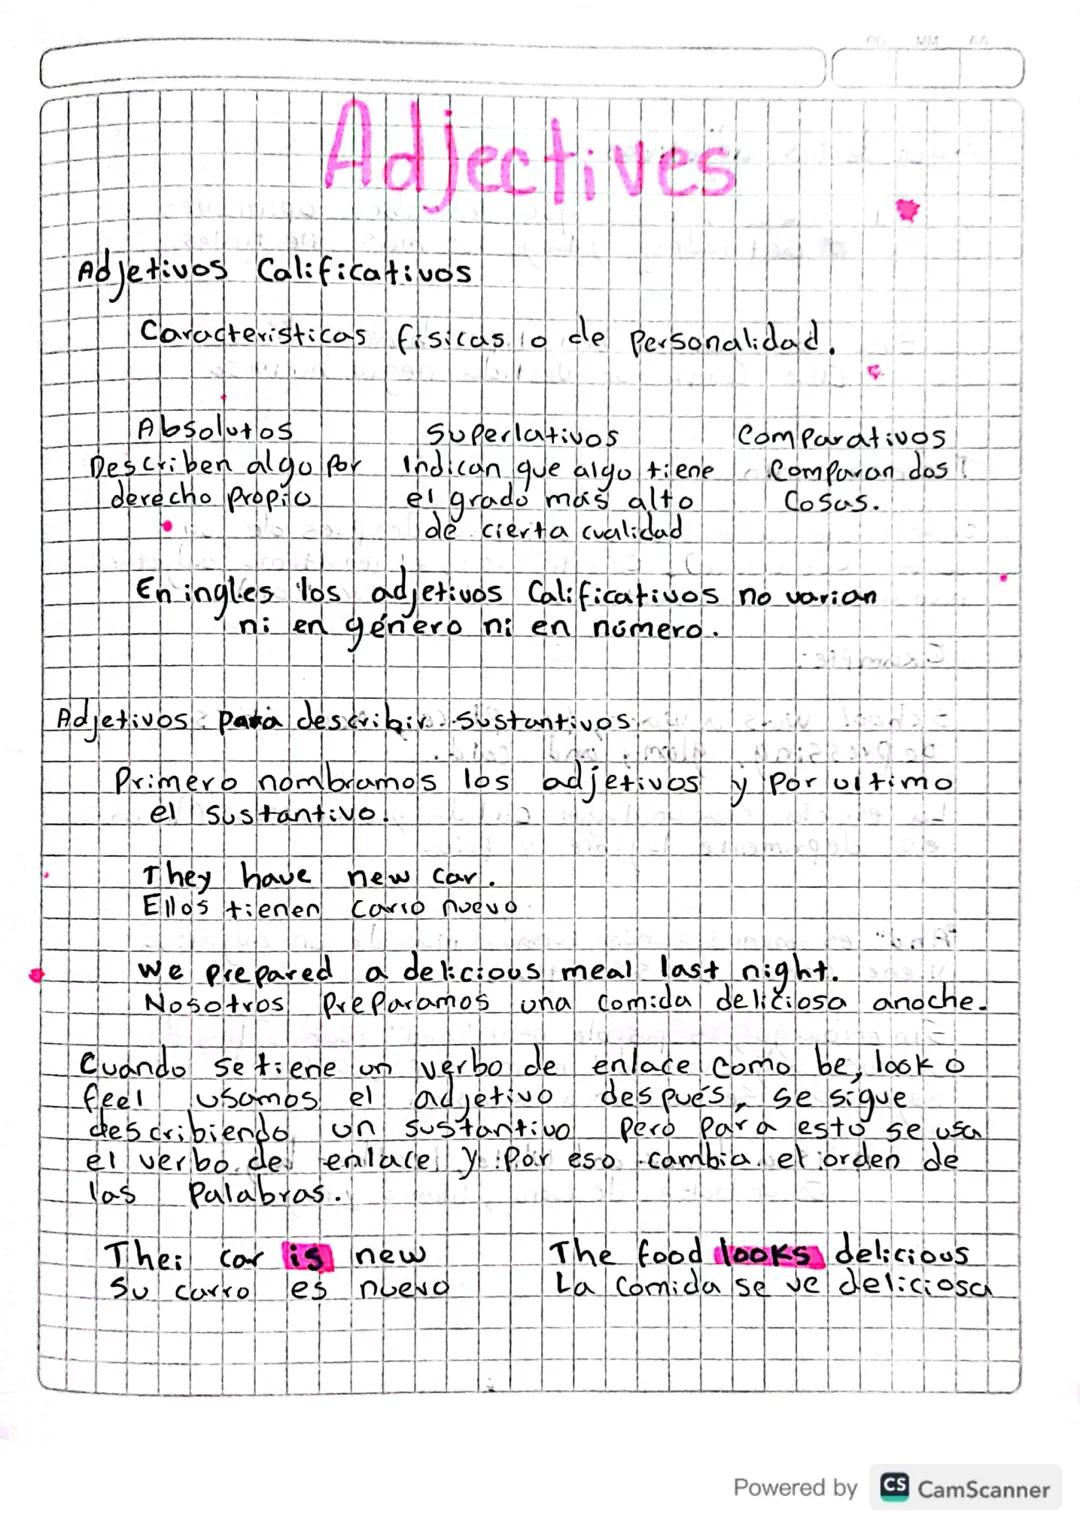 DD MM AA
Adjectives
Adjetivos Calificativos
Caracteristicas fisicas o de Personalidad.
Absolutos Superlativos Comparativos
Describen algo por Indican que algo tiene Comparan dos
derecho propio el grado más alto Cosas.
de cierta cualidad
En ingles los adjetivos Calificativos no varian
ni en género ni en número.
Adjetivos para describir sustantivos
Primero nombramos los adjetivos y por ultimo
el Sustantivo.
They have new car.
Ellos tienen carro nuevo
We prepared a delicious meal last night.
Nosotros Preparamos una comida deliciosa anoche.
Cuando se tiene un verbo de enlace como be, look o
feel usamos el adjetivo después, se sigue
describiendo un sustantivo pero para esto se usa
el verbo de enlace y por eso cambia el orden de
las Palabras.
Thei car is new The food looks delicious
Su carro es nuevo La Comida se ve deliciosa
Powered by CS CamScanner